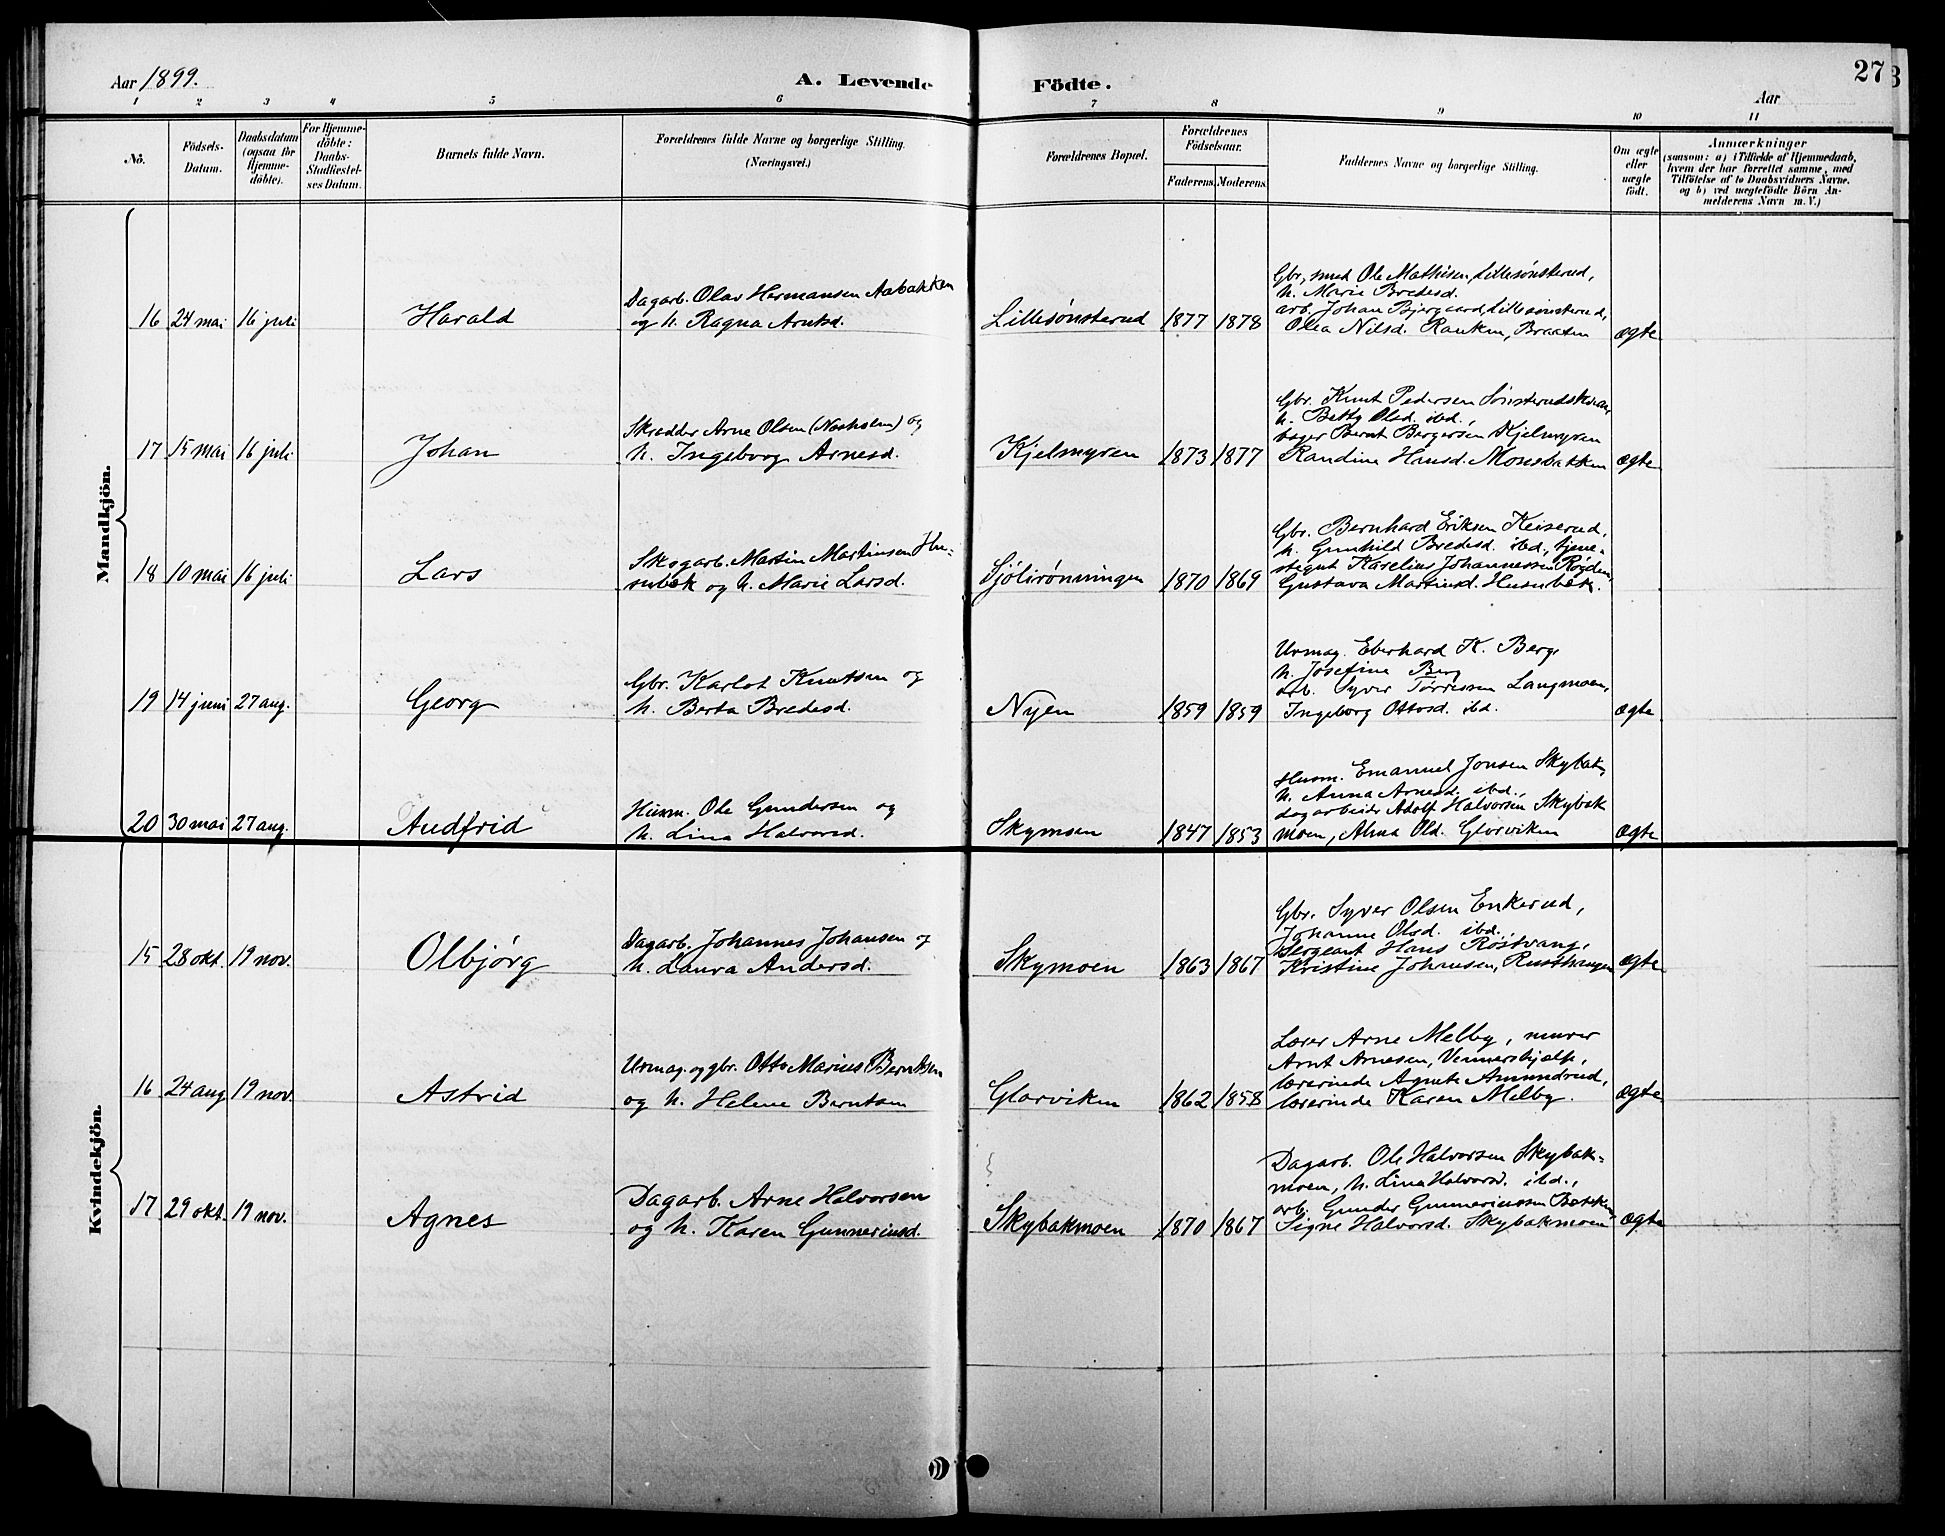 Aar 1899.
A. Levende Födte.
27
Aar
1 2 3 4 5 6 7 8 9 10 11
Nö.
Födsels-
Datum.
Daabsdatum
(ogsaa for
Hjemme-
döbte).
For Hjemme-
döbte:
Daabs-
Stadfæstel-
ses Datum.
Barnets fulde Navn.
Forældrenes fulde Navne og borgerlige Stilling.
(Næringsvei.)
Forældrenes Bopæl.
Forældrenes
Födselsaar.
Faderens. Moderens.
Faddernes Navne og borgerlige Stilling.
Om ægte
eller
uægte
födt.
Anmærkninger
(saasom: a) i Tilfælde af Hjemmedaab,
hvem der har forrettet samme, med
Tilföielse af to Daabsvidners Navne.
og b) ved uægtefödte Börn An-
melderens Navn m. V.)
Mandkjön.
16 24 mai 16 juli
Harald
Dagarb. Olav Hermansen Aabakken
og h. Ragna Arntsd.
Lillesønsterud 1877 1878
Gbr, smed Ole Mathisen, Lillesønsterud,
h. Marie Bredesd.
arb. Johan Bjergaard, Lillesønsterud,
Olea Nilsd. Ranken, Braaten
ægte
17 15 mai 16 juli
Johan
Skrædder Arne Olsen (Norholm) og
h. Ingeborg Arnesd.
Kjelmyren 1873 1877
Gbr. Knut Pedersen
h. Betty Olsd. ibd.,
bager Bernt Bergersen Kjelmyren
Randine Hansd. Monsbakken
ægte
18 10 mai 16 juli
Lars
Skogarb. Martin Martinsen Hu-
subæk og h. Marie Larsd.
Sjölirønningen 1870 1869
Gbr. Bernhard Eriksen Keiserud,
h. Gunhild Bredesd. ibd., tjene-
stegut Karelius Johannessen Røgden,
Gustava Martinsd. Husubæk.
19 14 juni 27 aug.
Georg
Gbr. Karlot Knutsen og
h. Berta Bredesd.
Nyen 1859 1859
Urmag. Eberhard K. Berg
h. Josefine Berg
arb. Syver Tørresen Langmoen,
Ingeborg Ottosd. ibd.
ægte
20 30 mai 27 aug.
Audfrid
Husm. Ole Gundersen og
h. Lina Halvorsd.
Skymoen 1847 1853
Husm. Emanuel Jonsen Skybak,
h. Anna Arnesd. ibd.,
dagarbeider Adolf Halvorsen Skybak
moen, Alma Olsd. Glorviken
ægte
Kvindekjön.
15 28 okt. 19 nov.
Olbjørg
Dagarb. Johannes Johansen og
h. Laura Andersd.
Skymoen 1863 1867
Gbr. Syver Olsen Enkerud,
Johanne Olsd. ibd.,
Sergeant Hans Rostvang,
Kristine Johnsen,
ægte
16 24 aug 19 nov
Astrid
Urmag. og gbr. Otto Marius Berntsen
og h. Helene Berntsen
Glorviken 1862 1858
Lærer Arne Melby, murer
Arnt Arnesen, Vennershjælp,
lærerinde Agnete Amundrud,
lærerinde Karen Melby.
ægte
17 29 okt. 19 nov.
Agnes
Dagarb. Arne Halvorsen
og h. Karen Gunneriusd.
Skybakmoen 1870 1867
Dagarb. Ole Halvorsen Skybak-
moen, h. Lina Halvorsd. ibd.,
arb. Gunder Gunneriussen Bakken
Signe Halvorsd. Skybakmoen
ægte